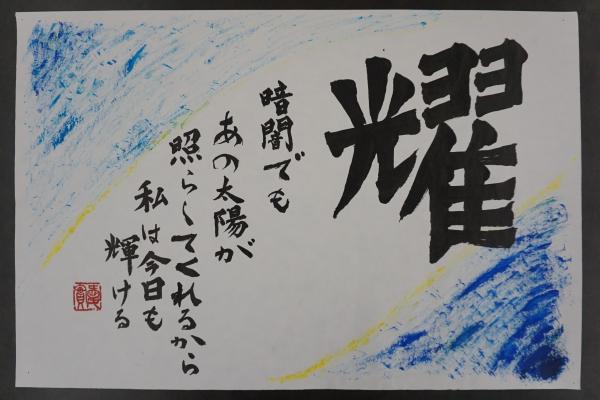 耀
暗闇でも
あの太陽が
照らしてくれるから
私は今日も
輝ける